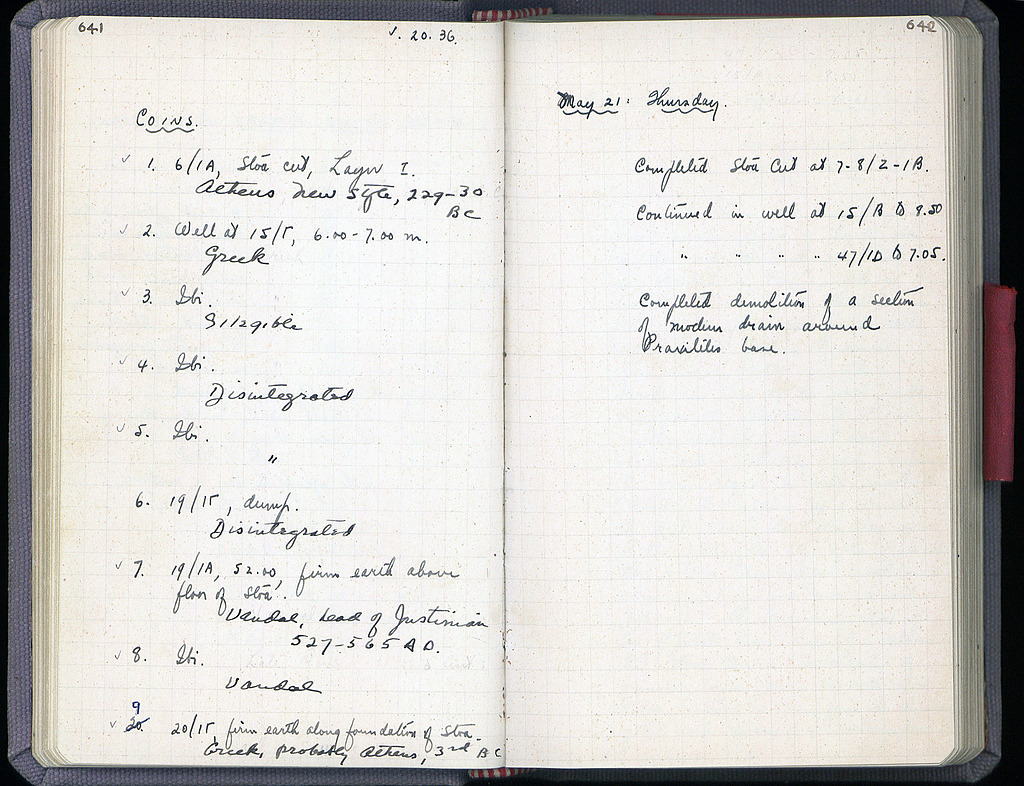 641
V. 20. 36.
COINS.
✓ 1. 6/ΙΔ, Stoa cut, Layer I.
Athens New Style, 229-30
BC
✓ 2. Well at 15/Γ, 6.00-7.00 m.
Greek
✓ 3. Ibi.
Illegible
✓ 4. Ibi.
Disintegrated
✓ 5. Ibi.
"
6. 19/ΙΓ, dump.
Disintegrated
✓ 7. 19/ΙΔ, 52.00, firm earth above
floor of Stoa.
Vandal, head of Justinian
527-565 A D.
✓ 8. Ibi.
Vandal
9
✓ 20/ΙΓ, firm earth along foundation of Stoa.
Greek, probably Athens, 3rd B C
642
May 21: Thursday.
Completed Stoa Cut at 7-8/Ζ-ΙΒ.
Continued in well at 15/Β to 8.50
" " " " 47/ΙΔ to 7.05.
Completed demolition of a section
of modern drain around
Praxiteles base.